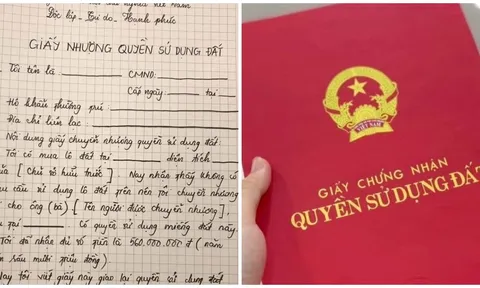 nghĩa Việt Nam
Độc lập - Tự do - Hạnh phúc
GIẤY NHƯỜNG QUYỀN SỬ DỤNG ĐẤT
Tôi tên là CMND:
Cấp ngày: tại
Hộ khẩu thường trú:
Địa chỉ liên lạc:
Nội dung giấy chuyển nhượng quyền sử dụng đất:
Tôi có mua lô đất tại diện tích
của [Chủ sở hữu trước]. Nay nhận thấy không có
cầu sử dụng lô đất trên nên tôi chuyển nhượng
cho ông (bà) [Tên người được chuyển nhượng],
tại Có quyền sử dụng miếng đất này.
Tôi đã nhận đủ số tiền là 560.000.000 đ (năm
sáu mươi triệu đồng)
Nay tôi viết giấy này giao lại quyền sử dụng đất
VIỆT NAM
GIẤY CHỨNG NHẬN
QUYỀN SỬ DỤNG ĐẤT